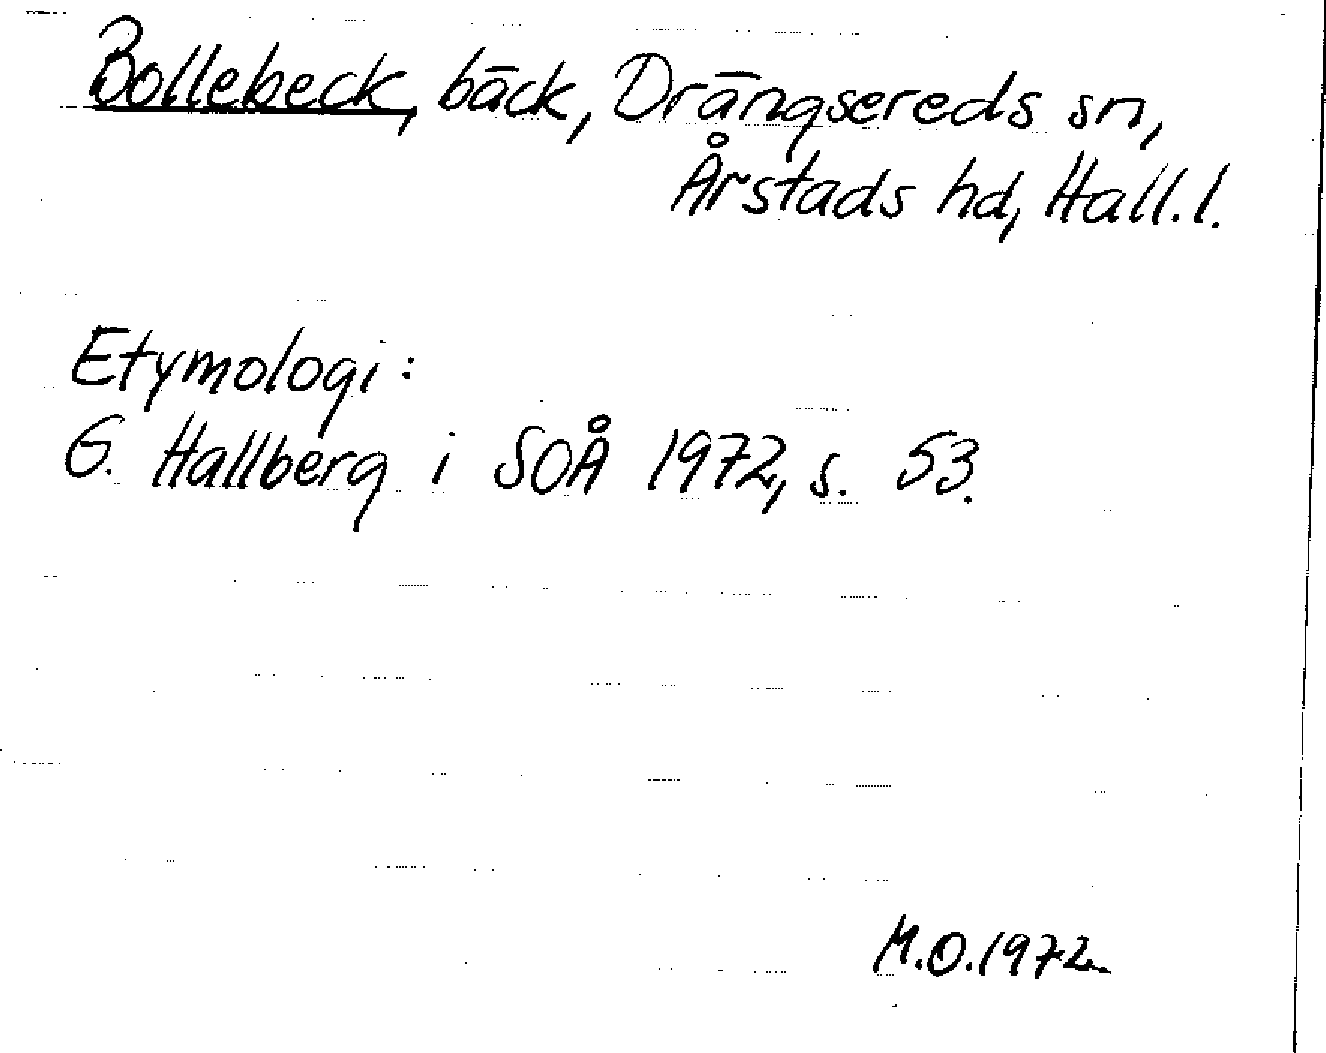 Bollebeck, bäck, Drängsereds sn,
Årstads hd, Hall. l.
Etymologi:
G. Hallberg i SOÅ 1972, s. 53.
M.O. 1972